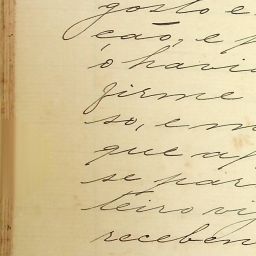 gosto e
ção, e p
o havia
firme
so, e m
que ap
se par
teiro vi
receben